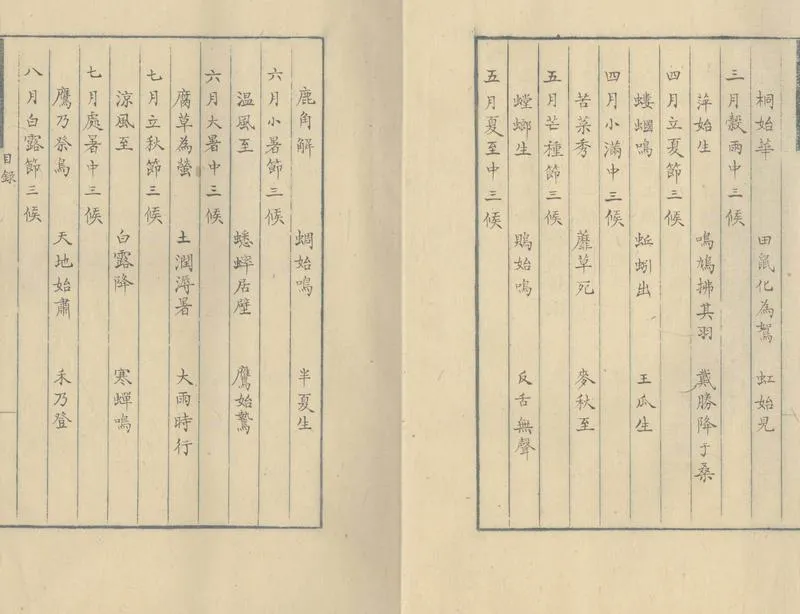 桐始華 田鼠化為鴽 虹始見
三月穀雨中三候
萍始生 鳴鳩拂其羽 戴勝降于桑
四月立夏節三候
螻蟈鳴 蚯蚓出 王瓜生
四月小滿中三候
苦菜秀 蘼草死 麥秋至
五月芒種節三候
螳螂生 鵙始鳴 反舌無聲
五月夏至中三候
鹿角解 蜩始鳴 半夏生
六月小暑節三候
温風至 蟋蟀居壁 鷹始鷙
六月大暑中三候
腐草為螢 土潤溽暑 大雨時行
七月立秋節三候
涼風至 白露降 寒蟬鳴
七月處暑中三候
鷹乃祭鳥 天地始肅 禾乃登
八月白露節三候
目録